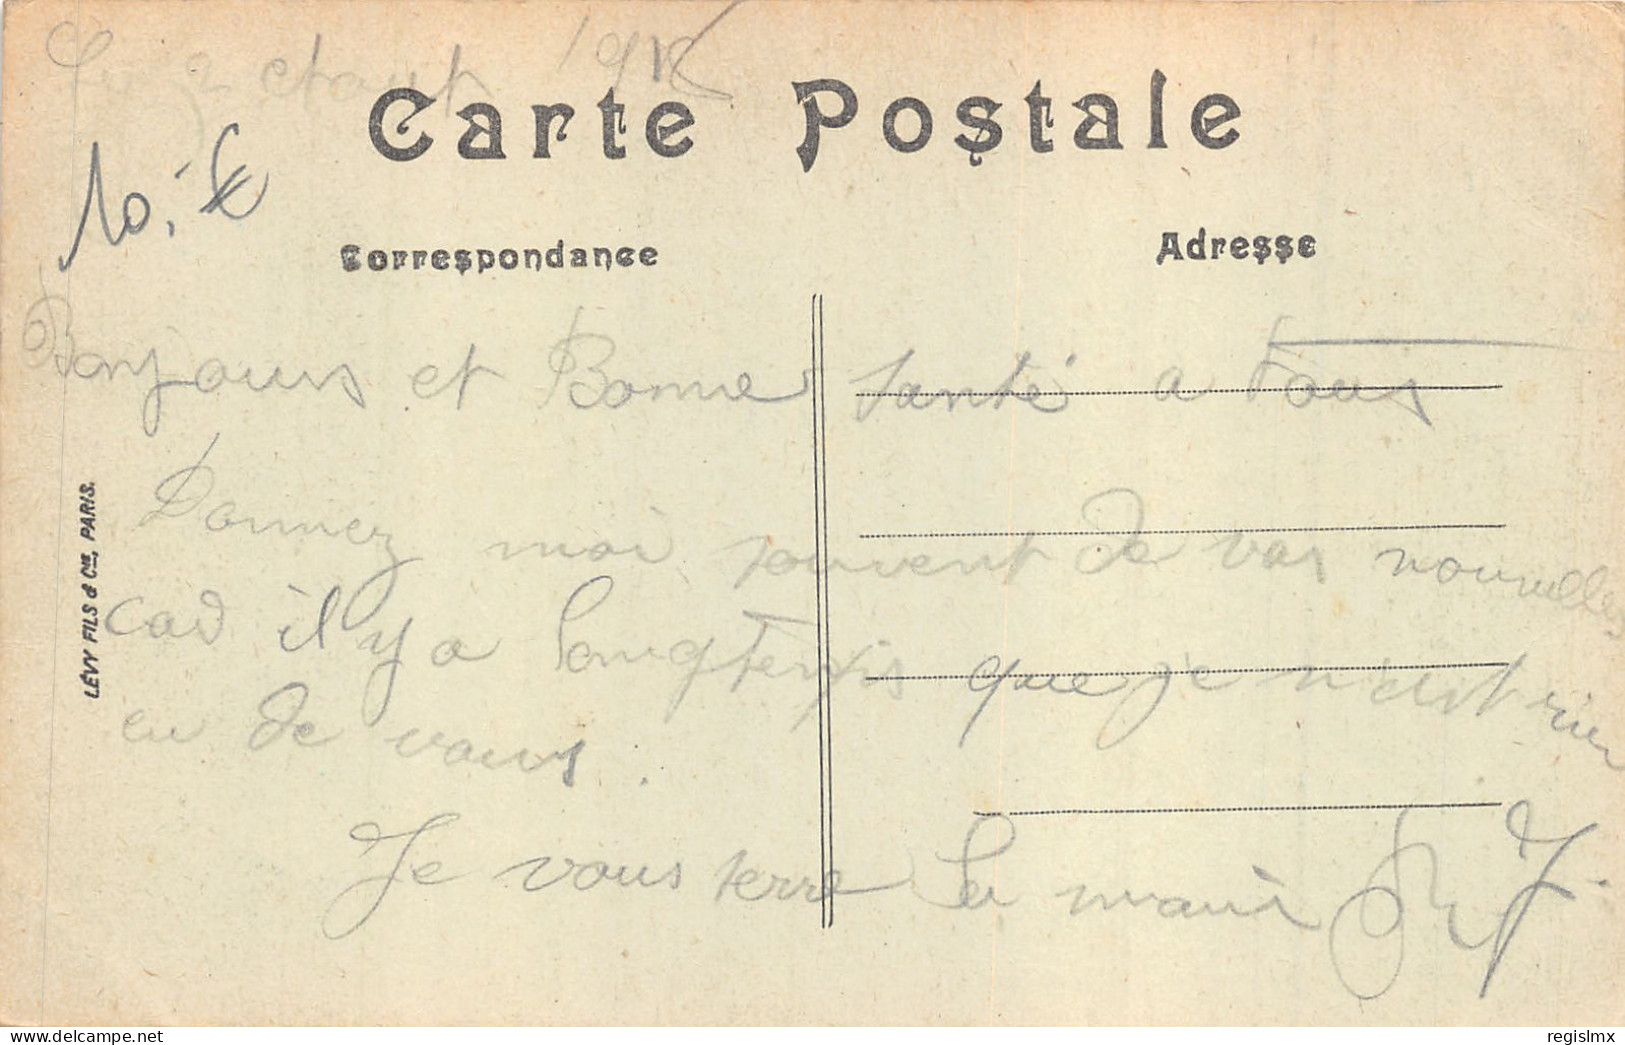 Le 2 etaut 191
Carte Postale
10,-€
Correspondance
Adresse
Bonjours et Bonne santé a tous
Donnez moi souvent de vos nouvelles
cad il y a longtemps que je n'eut rien
eu de vous.
Je vous serre la main
LÉVY FILS & Cie, PARIS.
delcampe.net
regislmx